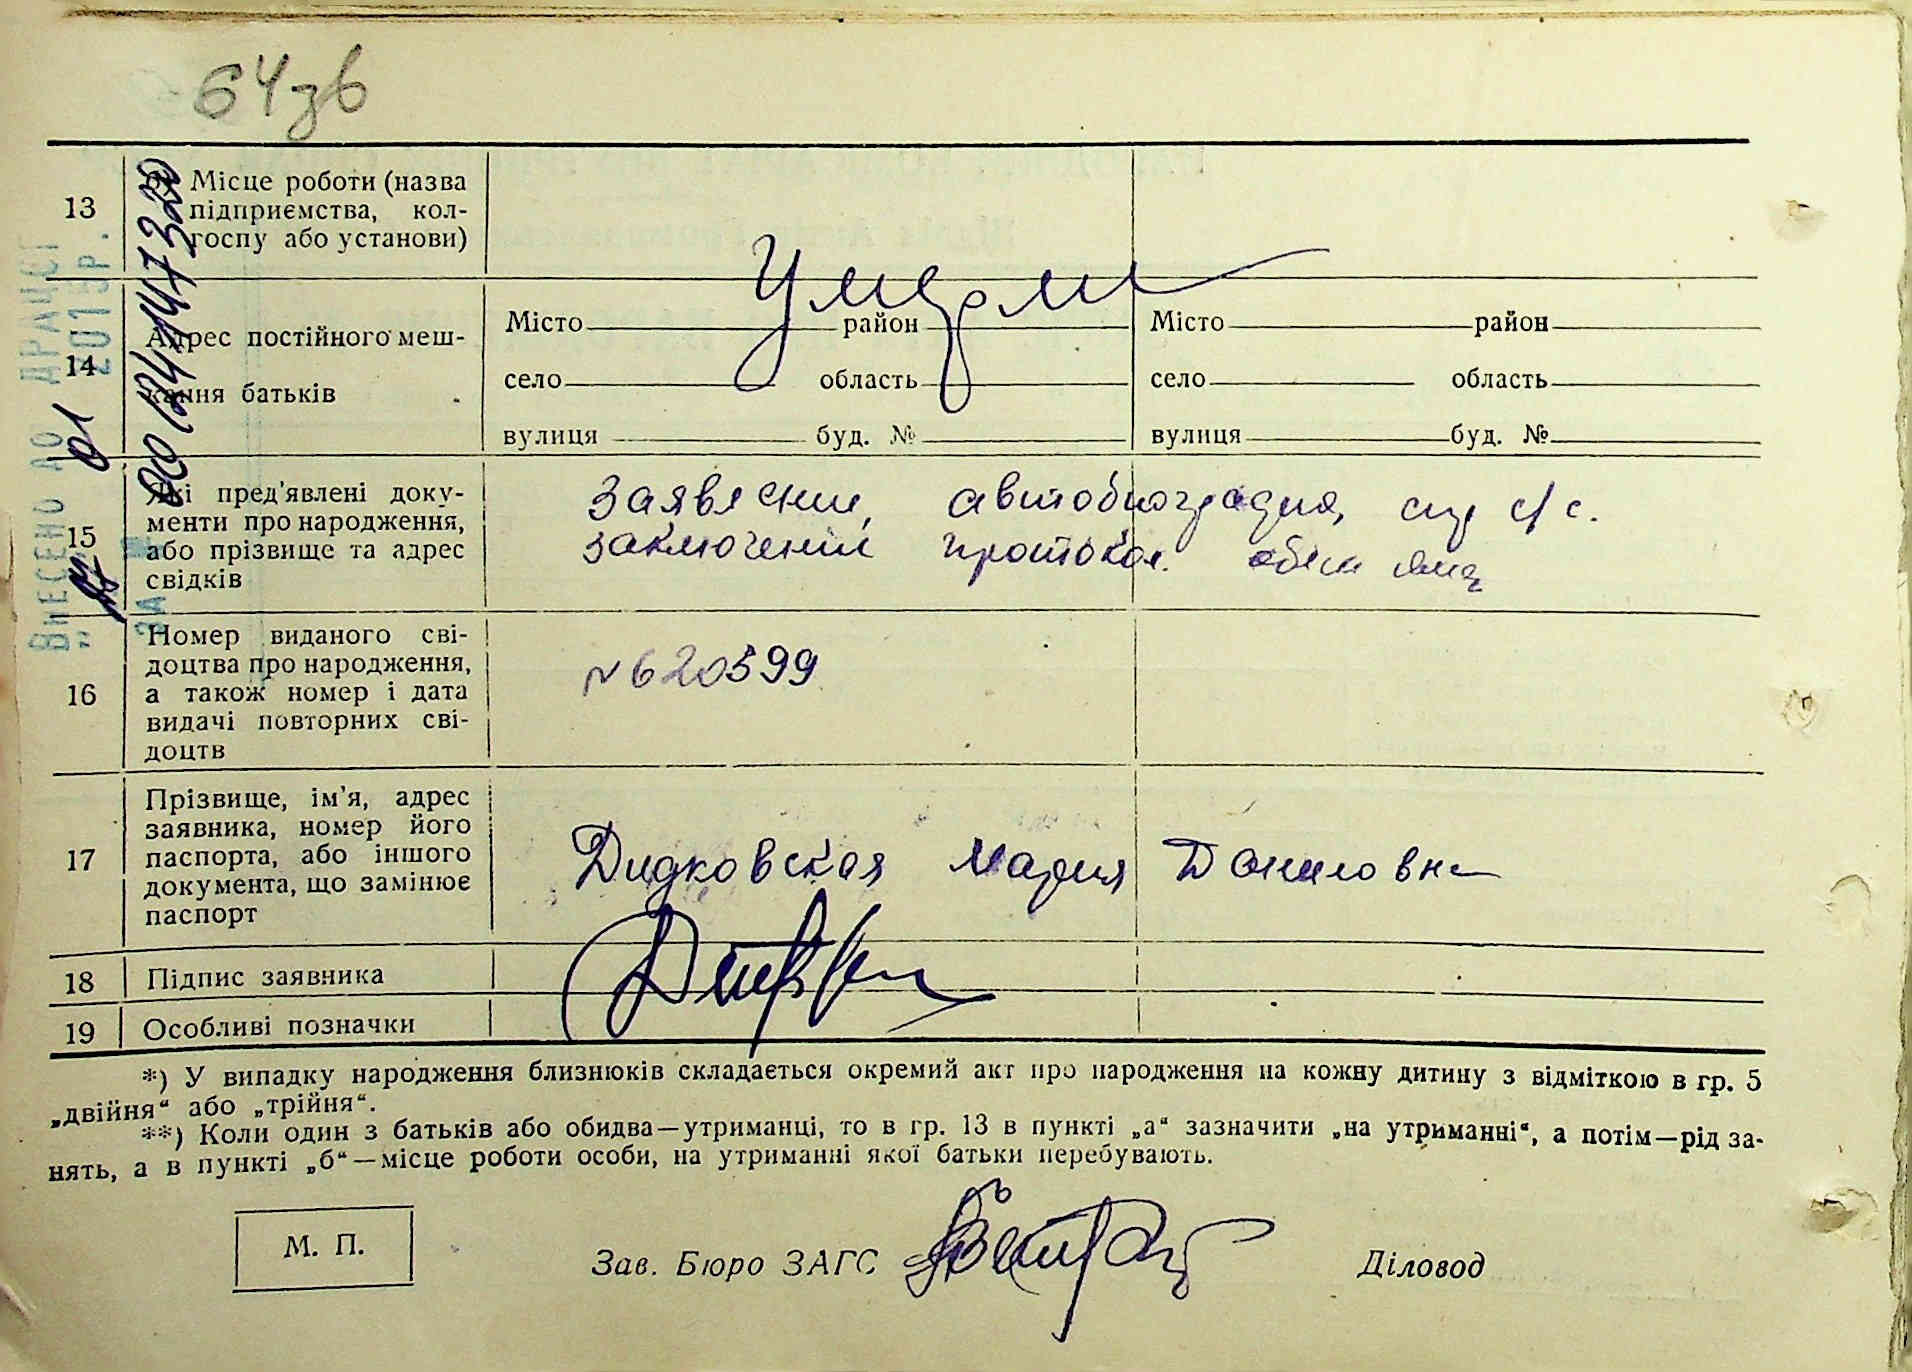 64зв
13 б) Місце роботи (назва
підприємства, кол-
госпу або установи)
14 Адрес постійного меш-
кання батьків
Умерли
Місто район Місто район
село область село область
вулиця буд. № вулиця буд. №
15 Які пред'явлені доку-
менти про народження,
або прізвище та адрес
свідків
заявление, автобиография, с/с.
заключении протокол.
16 Номер виданого сві-
доцтва про народження,
а також номер і дата
видачі повторних сві-
доцтв
N620599
17 Прізвище, ім'я, адрес
заявника, номер його
паспорта, або іншого
документа, що замінює
паспорт
Дидковская Мария Даниловна
18 Підпис заявника
19 Особливі позначки
*) У випадку народження близнюків складається окремий акт про народження на кожну дитину з відміткою в гр. 5
„двійня“ або „трійня“.
**) Коли один з батьків або обидва—утриманці, то в гр. 13 в пункті „а“ зазначити „на утриманні“, а потім—рід за-
нять, а в пункті „б“—місце роботи особи, на утриманні якої батьки перебувають.
М. П.
Зав. Бюро ЗАГС Діловод
ВНЕСЕНО ДО ДРАЦСГ
01 2015р.
ЗА №